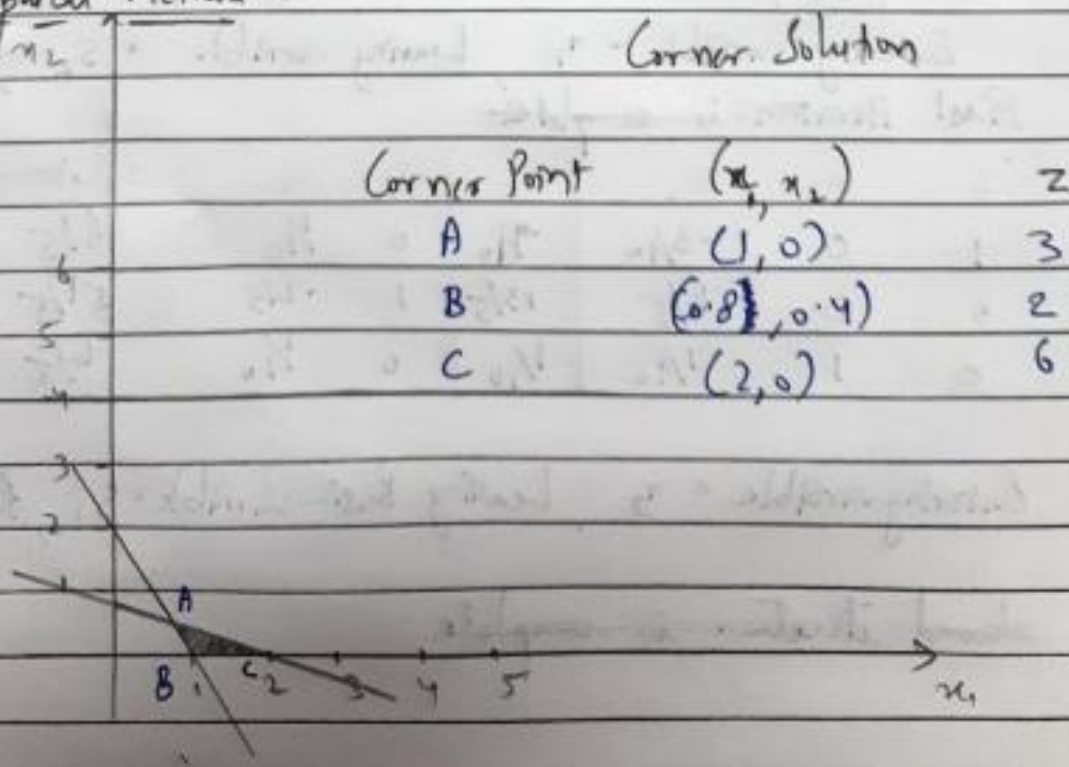 x₂
Corner Solution
Corner Point (x₁, x₂) Z
A (1, 0) 3
B (0.8, 0.4) 2
C (2, 0) 6
6
5
4
3
2
1
A
B 1 C 2 3 4 5 x₁